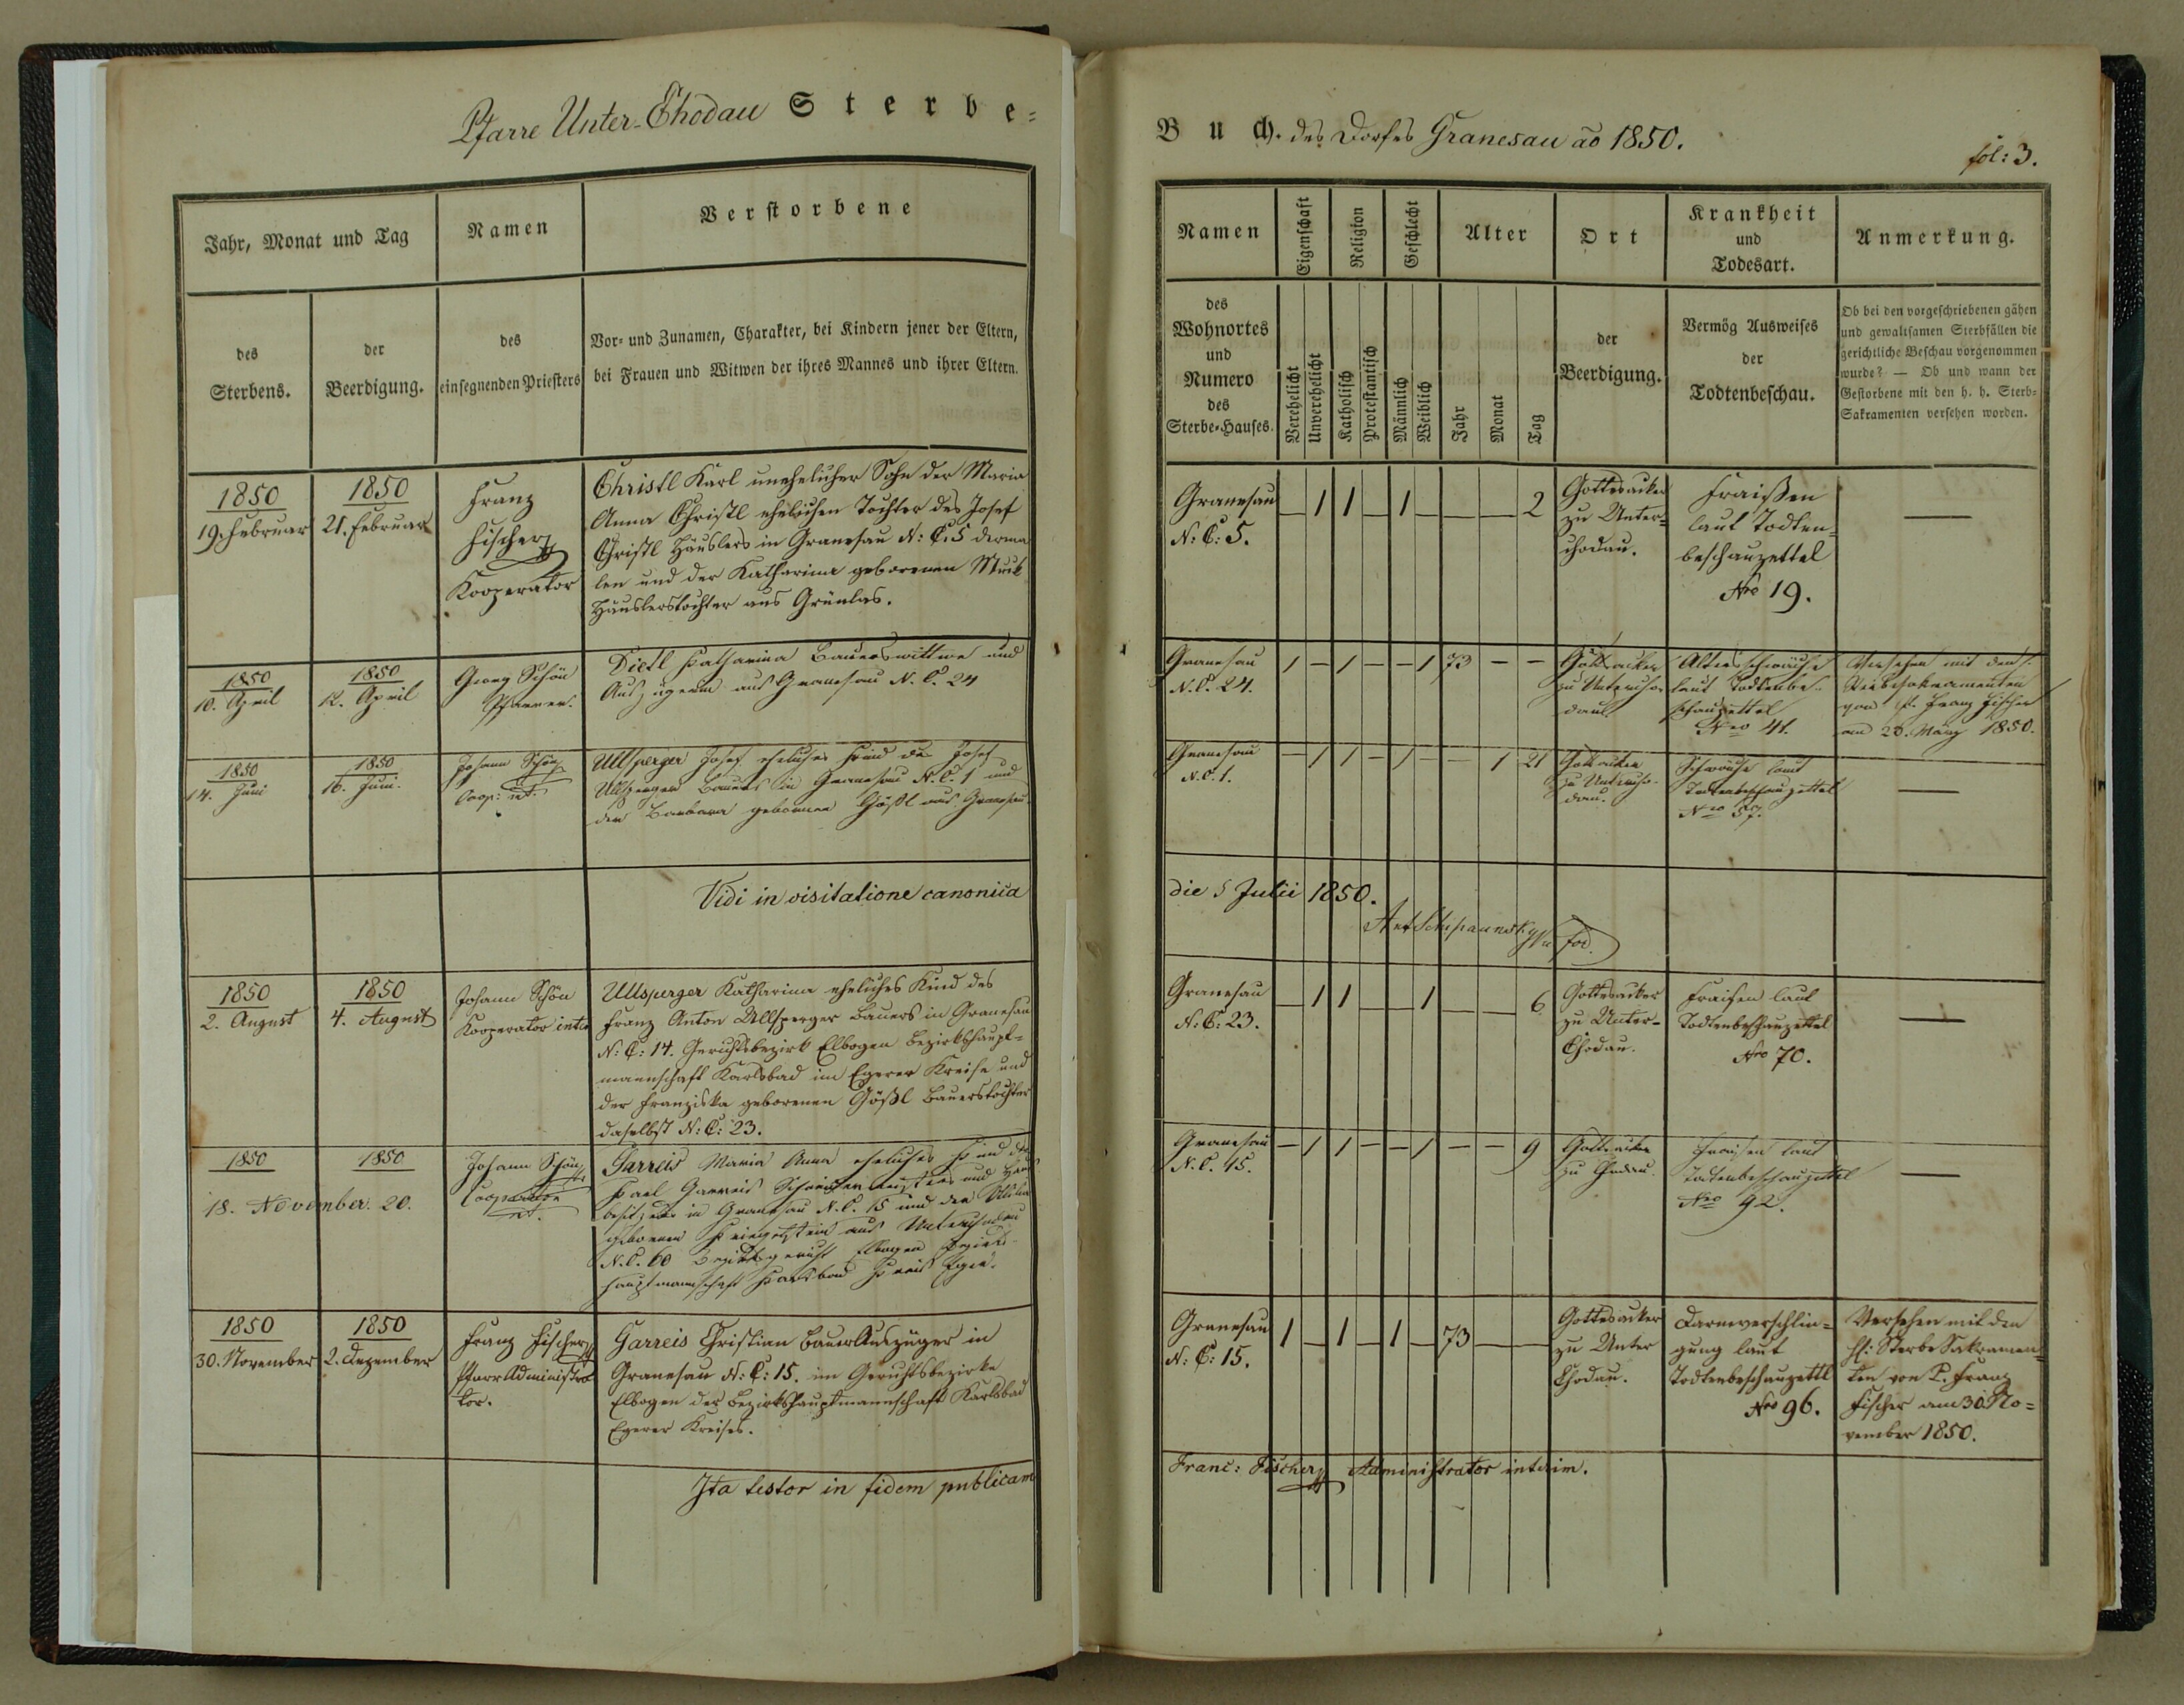 Pfarre Unter-Chodau Sterbe=
Jahr, Monat und Tag
Namen
Verstorbene
des
Sterbens.
der
Beerdigung.
des
einsegnenden Priesters
Vor- und Zunamen, Charakter, bei Kindern jener der Eltern,
bei Frauen und Witwen der ihres Mannes und ihrer Eltern.
1850
19. Februar
1850
21. Februar
Franz
Fischer
Kooperator
Christl Karl unehelicher Sohn der Maria
Anna Christl ehelichen Tochter des Josef
Christl Häuslers in Granesau N: C: 5 derma
len und der Katharina geborenen
Häuslerstochter aus Grünlas.
1850
10. April
1850
12. April
Georg Schön
Pfarrer.
Dietl Katharina Bauerswittwe und
Auszügerin aus Granesau N. C. 24
1850
14. Juni
1850
16. Juni.
Johann Schön
Coop: int.
Ullsperger Josef eheliches Kind des Josef
Ullsperger Bauers in Granesau N. C. 1 und
der Barbara gebornen Gößl aus Granesau
Vidi in visitatione canonica
1850
2. August
1850
4. August
Johann Schön
Kooperator inter
Ullsperger Katharina eheliches Kind des
Franz Anton Ullsperger Bauers in Granesau
N: C: 14. Gerichtsbezirk Elbogen Bezirkshaupt=
mannschaft Karlsbad im Egerer Kreise und
der Franziska geborenen Gößl Bauerstochter
daselbst N: C: 23.
1850
1850
18. November. 20.
Johann Schön
Cooperator
int.
Garreis Maria Anna eheliches Kind des
Karl Garreis Schneidermeisters und Haus
besitzers in Granesau N. C. 15 und der
gebornen aus Unterchodau
N. C. 60 Bezirksgericht Elbogen Bezirks-
hauptmannschaft Karlsbad Kreis Eger.
1850
30. November
1850
2. Dezember
Franz Fischer
Pfarr Administra
tor.
Garreis Christian Bauer Auszüger in
Granesau N: C: 15. im Gerichtsbezirke
Elbogen der Bezirkshauptmannschaft Karlsbad
Egerer Kreises.
Ita testor in fidem publicam
Buch. des Dorfes Granesau ao 1850.
fol: 3.
Namen
Eigenschaft
Religion
Geschlecht
Alter
Ort
Krankheit
und
Todesart.
Anmerkung.
des
Wohnortes
und
Numero
des
Sterbe-Hauses.
Verehelicht
Unverehelicht
Katholisch
Protestantisch
Männlich
Weiblich
Jahr
Monat
Tag
der
Beerdigung.
Vermög Ausweises
der
Todtenbeschau.
Ob bei den vorgeschriebenen gähen
und gewaltsamen Sterbfällen die
gerichtliche Beschau vorgenommen
wurde? — Ob und wann der
Gestorbene mit den h. h. Sterb-
Sakramenten versehen worden.
Granesau
N: C: 5.
— 1 1 — 1 — — — 2
Gottesacker
zu Unter=
chodau.
Fraißen
laut Todten=
beschauzettel
Nro 19.
—
Granesau
N. C. 24.
1 — 1 — — 1 73 — —
Gottsacker
zu Untercho-
dau
Altersschwäche
laut Todtenbe-
schauzettel
Nro 41.
Versehen mit den
Sterbsakramenten
von P. Franz Fischer
am 20. März 1850.
Granesau
N. C. 1.
— 1 1 — 1 — — 1 21
Gottsacker
zu Untercho-
dau.
Schwäche laut
Todtenbeschauzettel
Nro 57.
—
die 5 Julii 1850.
Granesau
N: C: 23.
— 1 1 — — 1 — — 6
Gottesacker
zu Unter-
Chodau.
Fraisen laut
Todtenbeschauzettel
Nro 70.
—
Granesau
N. C. 15.
— 1 1 — — 1 — — 9
Gottsacker
zu Chodau.
Fraisen laut
Todtenbeschauzettel
Nro 92.
—
Granesau
N: C: 15.
1 — 1 — 1 — 73 — —
Gottesacker
zu Unter
Chodau.
Darmverschlin=
gung laut
Todtenbeschauzettl
Nro 96.
Versehen mit den
hl: Sterbe Sakramen=
ten von P. Franz
Fischer am 30. No=
vember 1850.
Franc: Fischer Administrator interim.